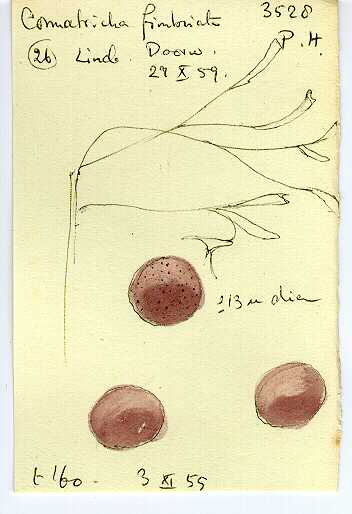 Comatricha fimbriata 3528
(26) Linde. Doorw. P. H.
27 X 59.
± 13 u diam
t 160 3 XI 59